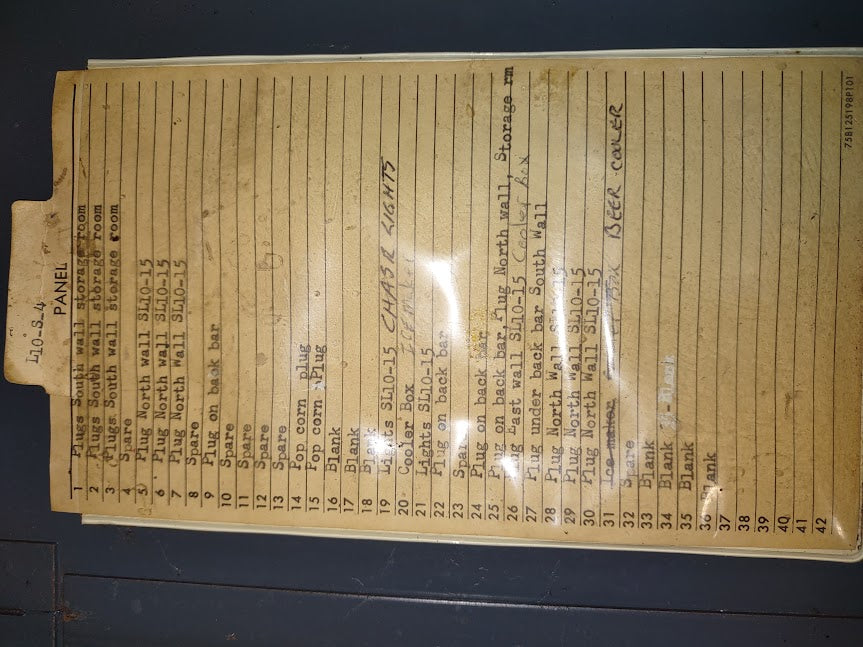 L10-S-4
PANEL
1 Plugs South wall storage room
2 Plugs South wall storage room
3 Plugs South wall storage room
4 Spare
5 Plug North wall SL10-15
6 Plug North Wall SL10-15
7 Plug North Wall SL10-15
8 Spare
9 Plug on back bar
10 Spare
11 Spare
12 Spare
13 Spare
14 Pop corn plug
15 Pop corn Plug
16 Blank
17 Blank
18 Blank
19 Lights SL10-15 CHASR LIGHTS
20 Cooler Box ICE Maker
21 Lights SL10-15
22 Plug on back bar
23 Spare
24 Plug on back bar
25 Plug on back bar, Plug North wall, Storage rm
26 Plug East wall SL10-15 Cooler Box
27 Plug under back bar South Wall
28 Plug North Wall SL10-15
29 Plug North Wall SL10-15
30 Plug North Wall SL10-15
31 Ice maker BOX BEER COOLER
32 Spare
33 Blank
34 Blank -Blank
35 Blank
36 Blank
37
38
39
40
41
42
75B125198P101